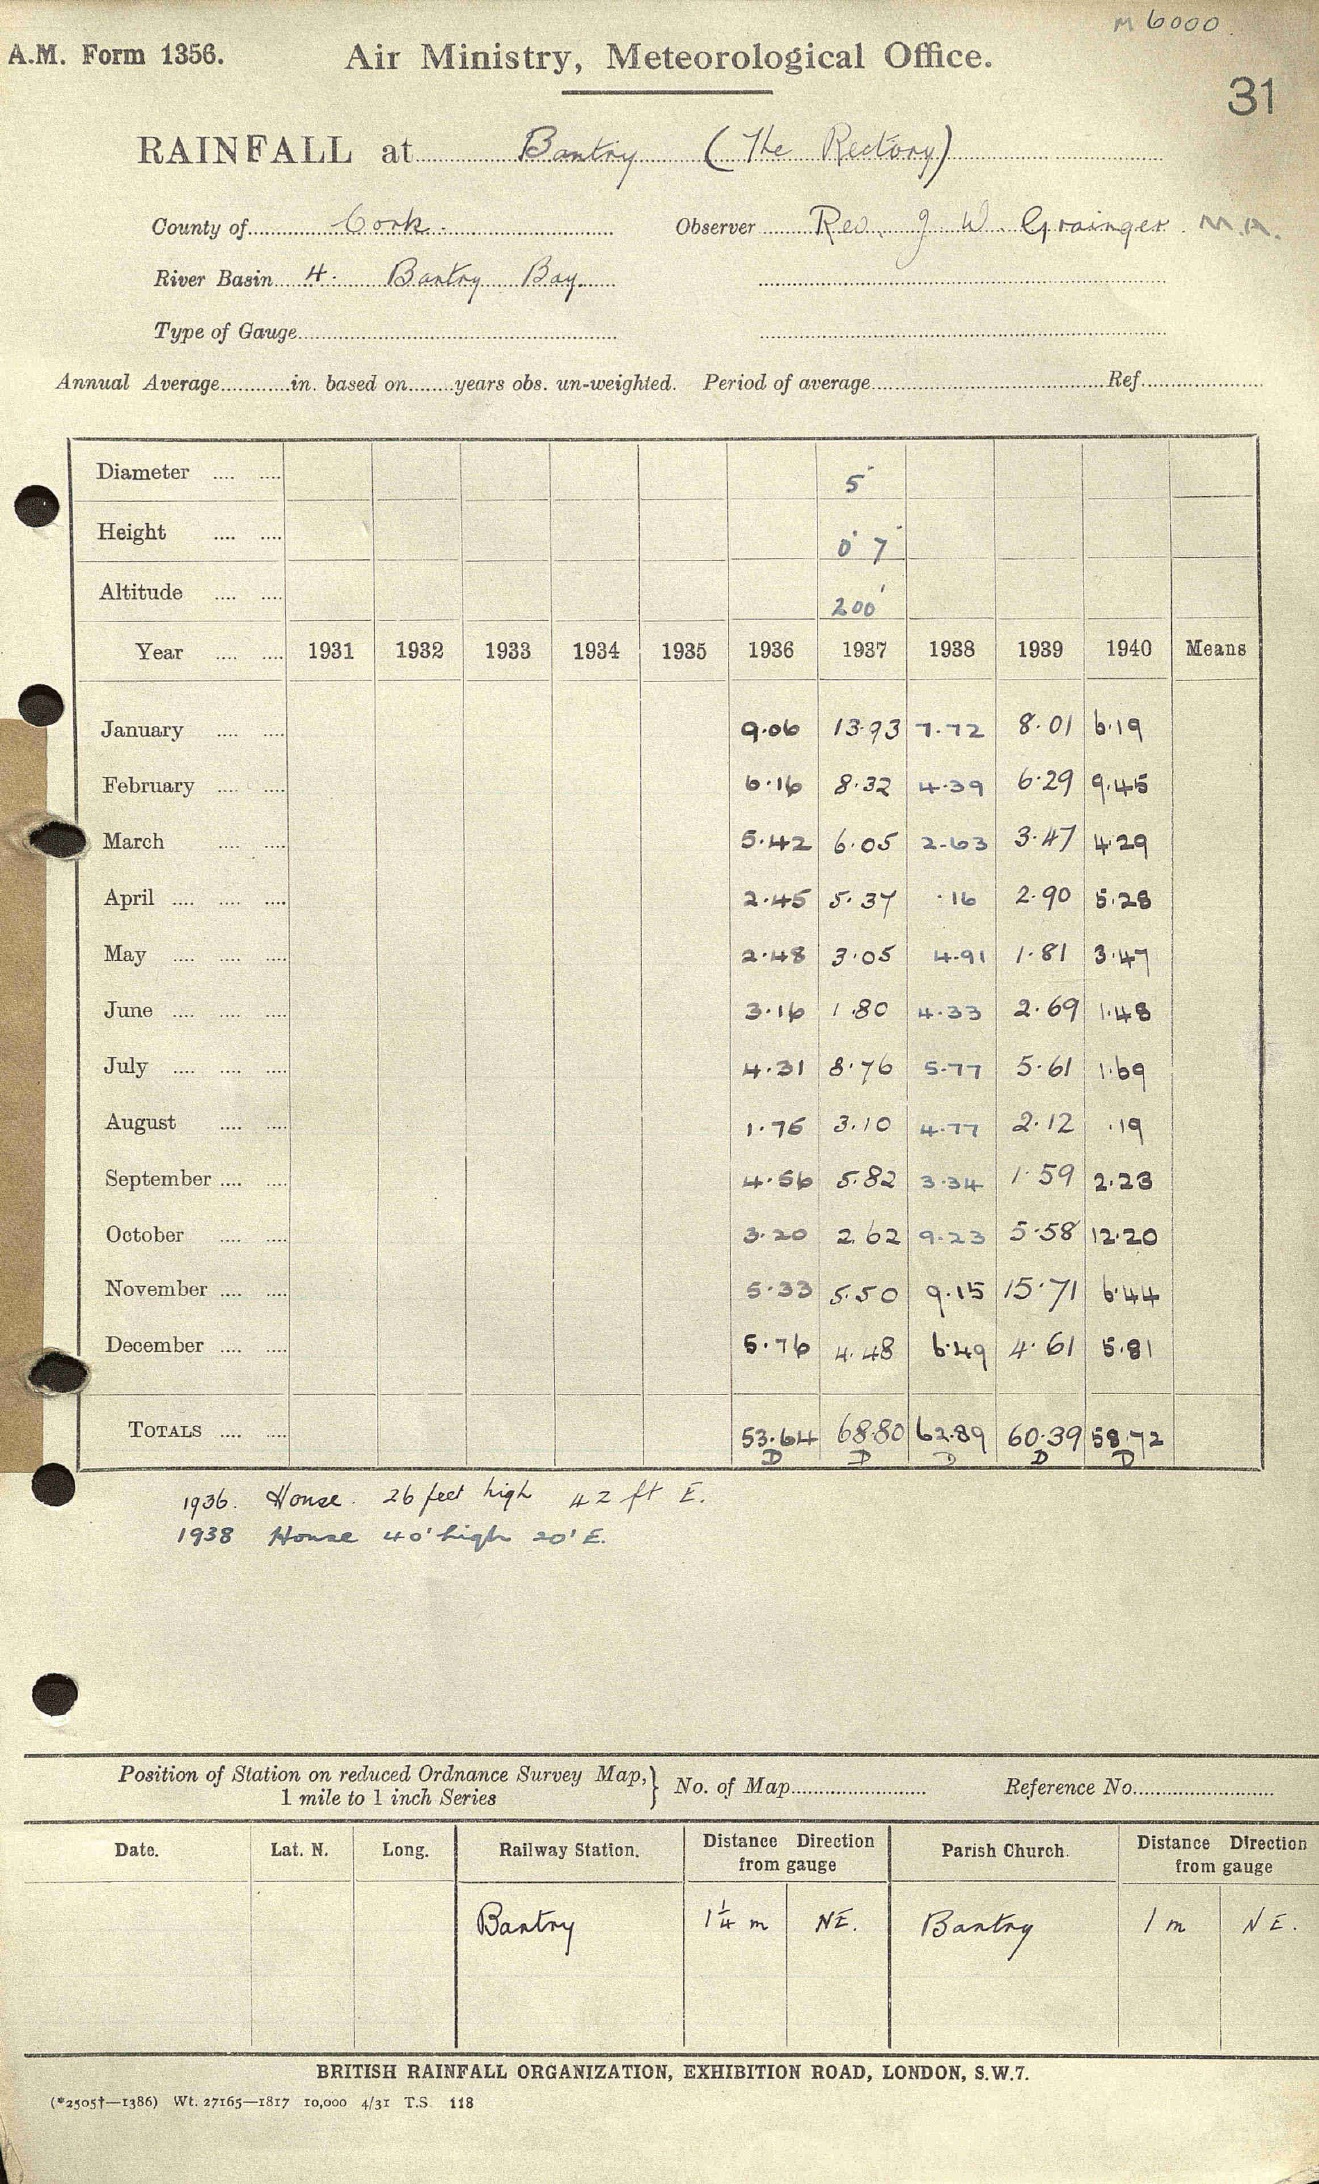 M 6000
A.M. Form 1356. Air Ministry, Meteorological Office.
31
RAINFALL at Bantry (The Rectory)
County of Cork. Observer Rev. J. W. Grainger. M.A.
River Basin 4. Bantry Bay.
Type of Gauge
Annual Average in. based on years obs. un-weighted. Period of average Ref.
Diameter 5"
Height 0' 7"
Altitude 200'
Year 1931 1932 1933 1934 1935 1936 1937 1938 1939 1940 Means
January 9.06 13.93 7.72 8.01 6.19
February 6.16 8.32 4.39 6.29 9.45
March 5.42 6.05 2.63 3.47 4.29
April 2.45 5.37 .16 2.90 5.28
May 2.48 3.05 4.91 1.81 3.47
June 3.16 1.80 4.33 2.69 1.48
July 4.31 8.76 5.77 5.61 1.69
August 1.75 3.10 4.77 2.12 .19
September 4.56 5.82 3.34 1.59 2.23
October 3.20 2.62 9.23 5.58 12.20
November 5.33 5.50 9.15 15.71 6.44
December 5.76 4.48 6.49 4.61 5.81
TOTALS 53.64 68.80 62.89 60.39 58.72
D D D D D
1936. House. 26 feet high 42 ft E.
1938 House 40' high 20' E.
Position of Station on reduced Ordnance Survey Map, } No. of Map Reference No.
1 mile to 1 inch Series
Date. Lat. N. Long. Railway Station. Distance Direction from gauge Parish Church. Distance Direction from gauge
Bantry 1¼ m NE. Bantry 1 m NE.
BRITISH RAINFALL ORGANIZATION, EXHIBITION ROAD, LONDON, S.W.7.
(*2505†—1386) Wt. 27165—1817 10,000 4/31 T.S. 118